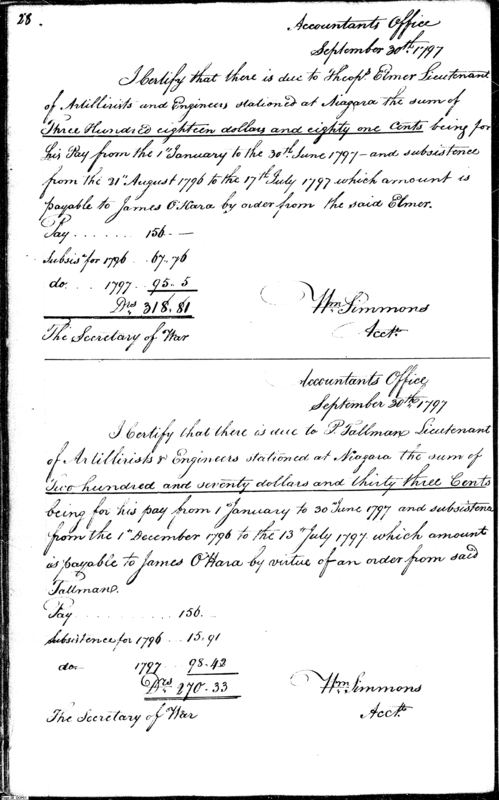 28.
Accountants Office
September 30th 1797
I Certify that there is due to Theop.s Elmer Lieutenant
of Artillirists and Engineers stationed at Niagara the sum of
Three Hundred eighteen dollars and eighty one Cents being for
his Pay from the 1st January to the 30th June 1797 - and subsistence
from the 21st August 1796 to the 17th July 1797 which amount is
payable to James O'Hara by order from the said Elmer.
Pay ....... 156. -
Subsis.e for 1796 .. 67..76
do. ... 1797 .. 95..5
Drs 318.81
Wm Simmons
Acct.
The Secretary of War
Accountants Office
September 30th 1797
I Certify that there is due to P. Tallman Lieutenant
of Artillirists & Engineers stationed at Niagara the sum of
Two hundred and seventy dollars and thirty three Cents
being for his pay from 1st January to 30th June 1797 and subsistence
from the 1st December 1796 to the 13th July 1797 which amount
is payable to James O'Hara by virtue of an order from said
Tallman.
Pay ............ 156.
Subsistence for 1796 ... 15.91
do. 1797 .. 98.42
Drs 270.33
Wm Simmons
Acct.
The Secretary of War